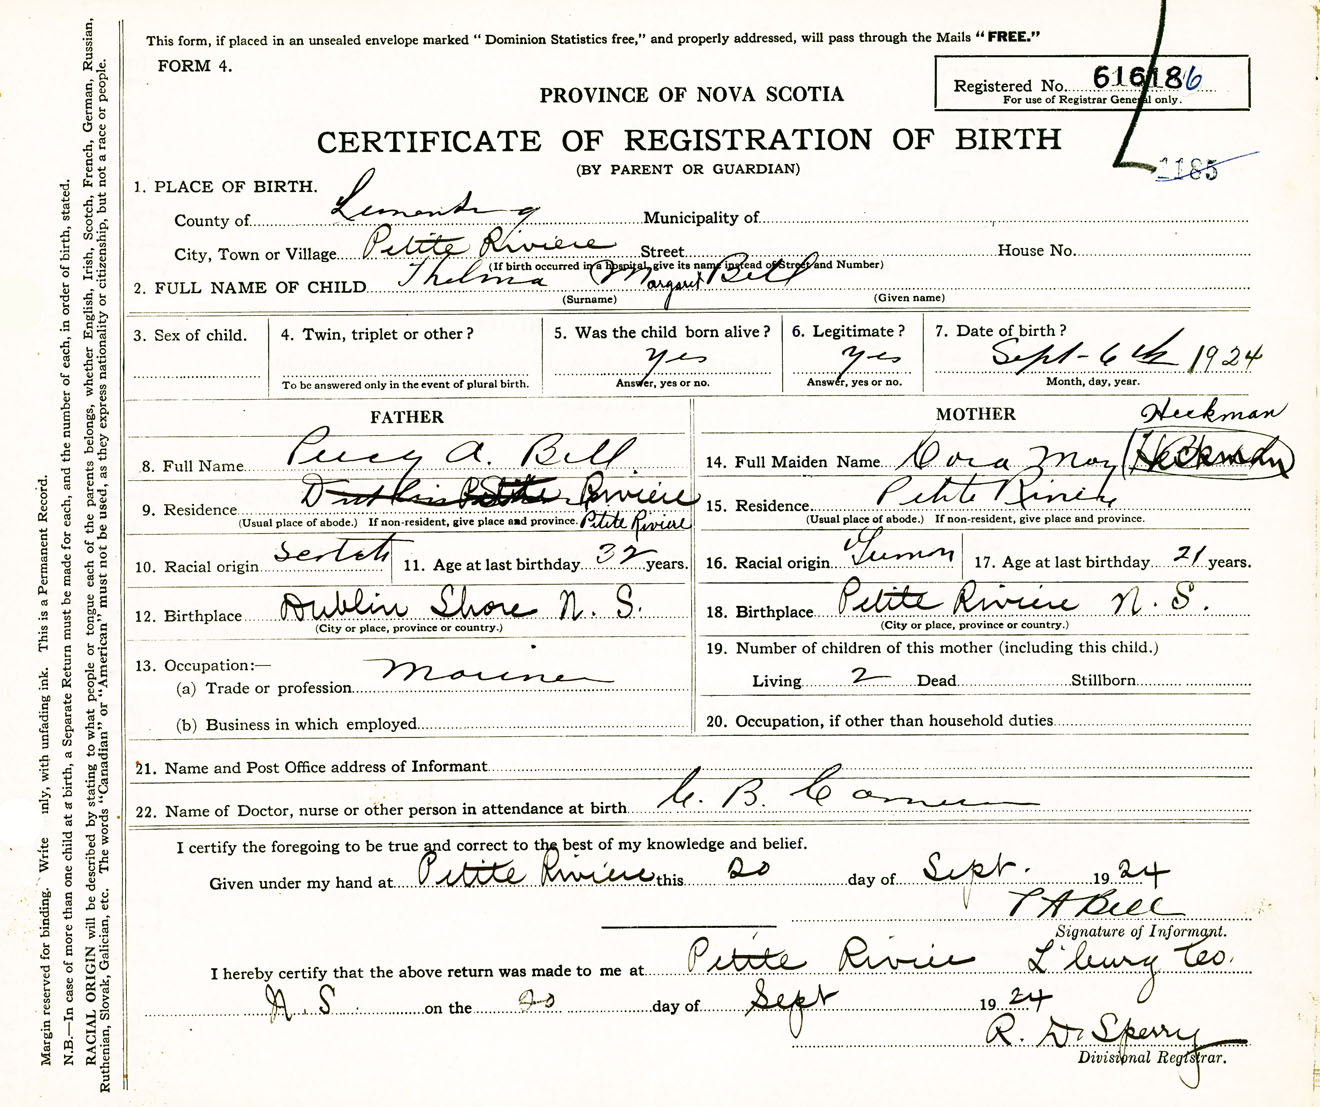 This form, if placed in an unsealed envelope marked " Dominion Statistics free," and properly addressed, will pass through the Mails "FREE."
FORM 4.
Registered No. 616186
For use of Registrar General only.
PROVINCE OF NOVA SCOTIA
CERTIFICATE OF REGISTRATION OF BIRTH
1185
(BY PARENT OR GUARDIAN)
1. PLACE OF BIRTH.
County of Lunenburg Municipality of
City, Town or Village Petite Riviere Street House No.
(If birth occurred in a hospital, give its name instead of Street and Number)
2. FULL NAME OF CHILD Thelma Margaret Bell
(Surname) (Given name)
3. Sex of child. 4. Twin, triplet or other? 5. Was the child born alive? 6. Legitimate? 7. Date of birth?
yes yes Sept - 6th 1924
To be answered only in the event of plural birth. Answer, yes or no. Answer, yes or no. Month, day, year.
FATHER
8. Full Name Percy A. Bell
9. Residence Riviere
(Usual place of abode.) If non-resident, give place and province. Petite Riviere
10. Racial origin 11. Age at last birthday 32 years.
12. Birthplace Dublin Shore N. S.
(City or place, province or country.)
13. Occupation:—
(a) Trade or profession Mariner
(b) Business in which employed
MOTHER
Heckman
14. Full Maiden Name Cora May Heckman
15. Residence. Petite Riviere
(Usual place of abode.) If non-resident, give place and province.
16. Racial origin German 17. Age at last birthday 21 years.
18. Birthplace Petite Riviere N. S.
(City or place, province or country.)
19. Number of children of this mother (including this child.)
Living 2 Dead Stillborn
20. Occupation, if other than household duties
21. Name and Post Office address of Informant
22. Name of Doctor, nurse or other person in attendance at birth B.
I certify the foregoing to be true and correct to the best of my knowledge and belief.
Given under my hand at Petite Riviere this 20 day of Sept. 1924
P A Bell
Signature of Informant.
I hereby certify that the above return was made to me at Petite Riviere L'burg Co.
N. S. on the 20 day of Sept 1924
R. D. Sperry
Divisional Registrar.
Margin reserved for binding. Write inly, with unfading ink. This is a Permanent Record.
N.B.—In case of more than one child at birth, a Separate Return must be made for each, and the number of each, in order of birth, stated.
RACIAL ORIGIN will be described by stating to what people or tongue each of the parents belongs, whether English, Irish, Scotch, French, German, Russian,
Ruthenian, Slovak, Galician, etc. The words "Canadian" or "American" must not be used, as they express nationality or citizenship, but not a race or people.